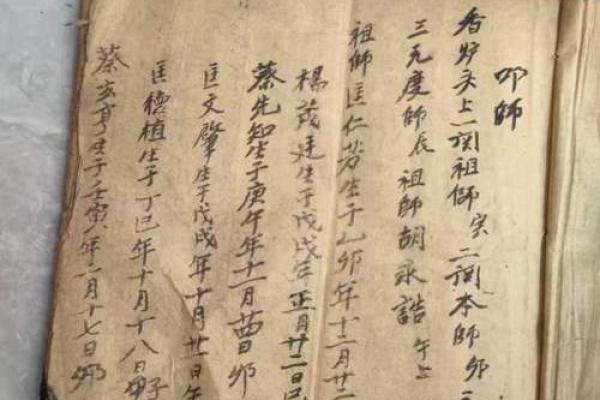 叩師
香炉头上一闵祖師 宗二闵本師 卯
三元度師長 祖師胡永誥 午上
祖師匡仁芳生于乙卯年十二月廿二
楊茂廷生于戊戌年正月廿二日巳
蔡先知生于庚午年十二月 日卯
匡文肇生于戊戌年十月廿一日午
匡德植生于丁巳年十月十八日子
蔡玄亨生于壬寅年二月十七日卯